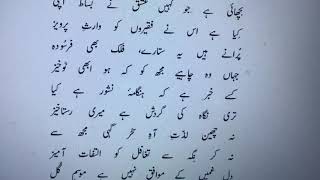 بچھائی ہے جو کہیں عشق نے بساط اپنی
کیا ہے اس نے فقیروں کو وارثِ پرویز
پُرانے ہیں یہ ستارے، فلک بھی فرسُودہ
جہاں وہ چاہیے مجھ کو کہ ہو ابھی نَوخیز
کسے خبر ہے کہ ہنگامۂ نشور ہے کیا
تری نگاہ کی گردش ہے میری رستاخیز
نہ چھین لذتِ آہِ سَحَر گہی مجھ سے
نہ کر نِگہ سے تغافل کو التفات آمیز
دلِ غمیں کے موافق نہیں ہے موسمِ گُل